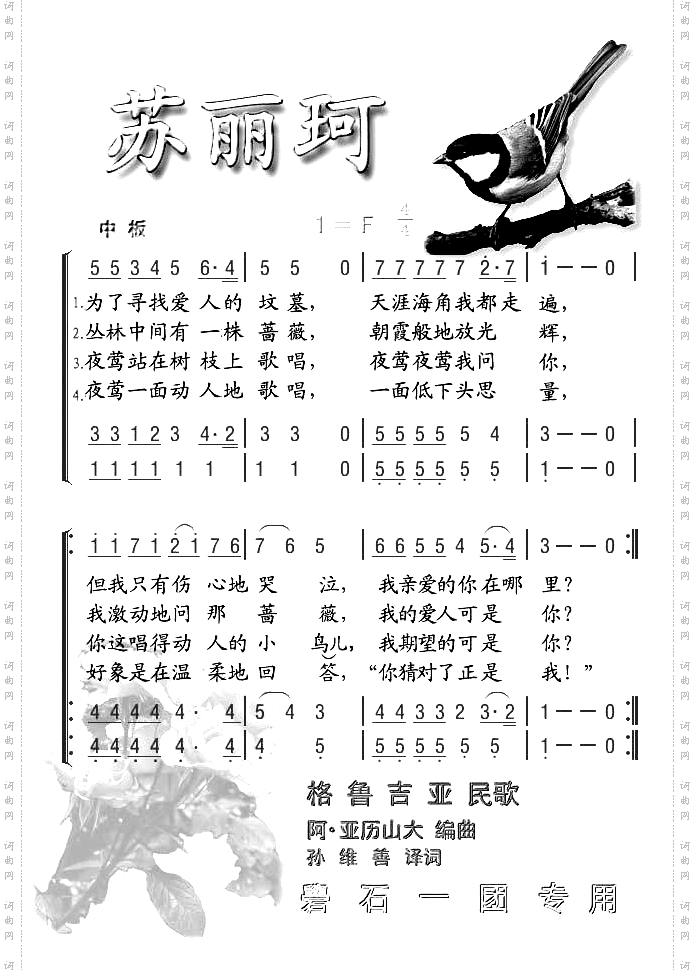 苏丽珂
中板 1=F 4/4
5 5 3 4 5 6·4 | 5 5 0 | 7 7 7 7 7 2·7 | 1——0 |
1.为了寻找爱 人的 坟墓， 天涯海角我都走 遍，
2.丛林中间有 一株 蔷薇， 朝霞般地放光 辉，
3.夜莺站在树 枝上 歌唱， 夜莺夜莺我问 你，
4.夜莺一面动 人地 歌唱， 一面低下头思 量，
3 3 1 2 3 4·2 | 3 3 0 | 5 5 5 5 5 4 | 3——0 |
1 1 1 1 1 1 | 1 1 0 | 5 5 5 5 5 5 | 1——0 |
1 1 7 1 2 1 7 6 | 7 6 5 | 6 6 5 5 4 5·4 | 3——0 :||
但我只有伤 心地 哭 泣， 我亲爱的你在哪 里？
我激动地问 那 蔷 薇， 我的爱人可是 你？
你这唱得动 人的 小 鸟儿， 我期望的可是 你？
好象是在温 柔地 回 答，“你猜对了正是 我！”
4 4 4 4 4· 4 | 5 4 3 | 4 4 3 3 2 3·2 | 1——0 :||
4 4 4 4 4· 4 | 4 5 | 5 5 5 5 5 5 | 1——0 :||
格鲁吉亚民歌
阿·亚历山大 编曲
孙维善 译词
礐石一国专用
词曲网